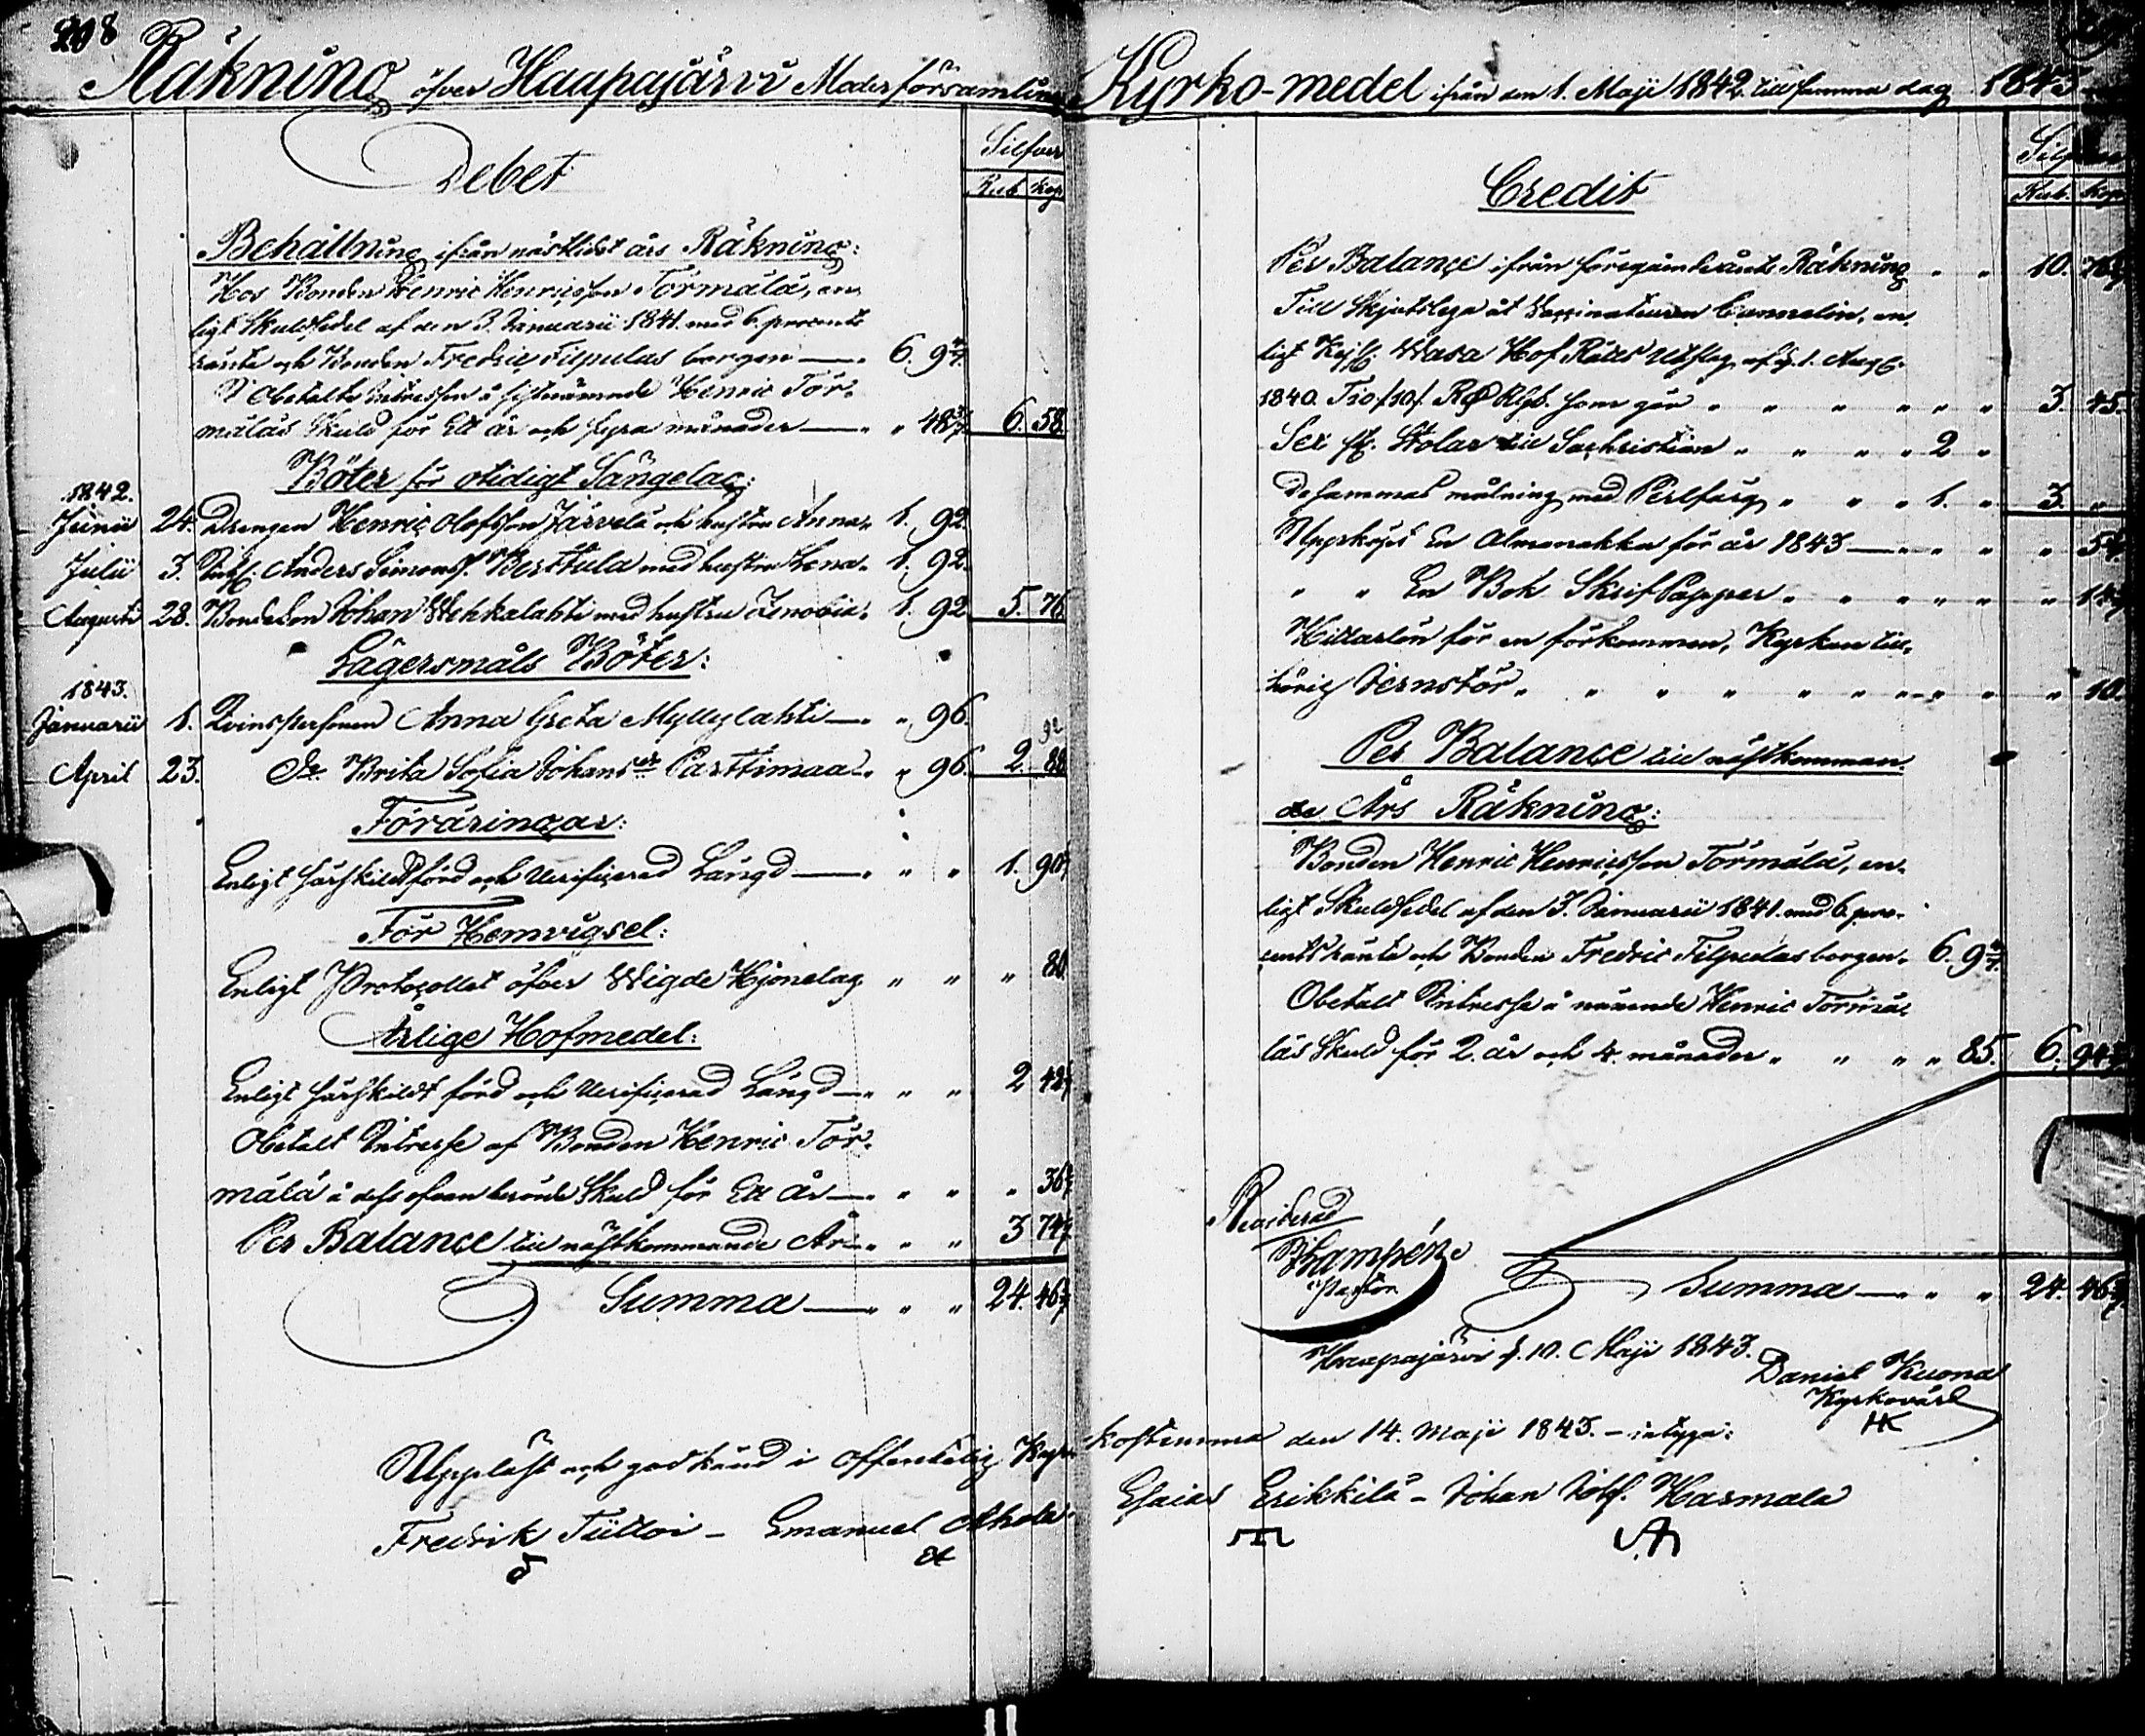 208
Räkning öfver Haapajärvi Moderförsamlings
Debet
Silfver
Rub kop
Behållning ifrån nästlidet års Räkning:
Hos Bonden Henric Henricsson Törmälä, en-
ligt Skuldsedel af den 3. Januarii 1841. med 6. procents
ränta och Bonden Fredric Filpulas borgen — 6. 9
Obetalte Intressen å sistnämnde Henric Tör-
mäläs Skuld för Ett år och fyra månader — " 48 6. 58.
Böter för otidigt Sängelag:
1842.
Junii 24. Drengen Henric Olofsson Järvelä och hustru Anna " 1. 92.
Julii 3. Anders Simonss. Berttula med hustru Lena " 1. 92.
Augusti 28. Bondeson Johan Wehkalahti med hustru Zenobia " 1. 92 5. 76
Lägersmåls Böter:
1843.
Januarii 1. Qvinspersonen Anna Greta Myllylahti — " 96.
92
April 23. Do Brita Sofia Johansdr Parttimaa " " 96. 2. 88
Föräringar:
Enligt särskildt förd och Verificerad Längd — " " 1. 90
För Hemvigsel:
Enligt Protocollet öfver Wigde Hjonelag " " " 80
Årlige Hofmedel:
Enligt särskildt förd och Verificerad Längd — " " 2 42
Obetalt Intresse af Bonden Henric Tör-
mälä å dess ofvan berörde Skuld för Ett År — " " " 36
Per Balance till nästkommande År — " " 3 74
Summa — " " 24. 46
Uppläst och godkänd i offentelig Kyr-
Fredrik Tiitto - Emanuel Ahola
Kyrko-medel ifrån den 1. Maji 1842. till samma dag 1843
Credit
Silfver
Rub. kop
Per Balance ifrån föregående års Räkning " " 10. 76
Till Skjutslega åt Vaccinateuren Cannelin, en-
ligt Kejs. Wasa Hof Rätts Utslag af d. 1. Aug.
1840. Tio /10/ R Rgs. som gör " " " " " 3. 45.
Sex st. Stolar till Sachristian " " " " 2 "
Desammas målning med Perlfärg " " " 1. " 3. "
Uppköpt En Almanakka för år 1843 — " " " 54
" " En Bok Skrif Papper " " " " " " 17
Hittarlön för en förkommen, Kyrkan till-
hörig Jernstör " " " " " " " " " 10.
Per Balance till nästkomman-
de Års Räkning:
Bonden Henric Henricsson Törmälä, en-
ligt Skuldsedel af den 3. Januarii 1841. med 6. pro-
cents ränta och Bonden Fredric Filpulas borgen " 6. 9
Obetalt Intresse å nämnde Henric Törmä-
läs Skuld för 2. år och 4. månader " " " " 85. 6. 94
Reviderad
Pastor
Summa — " " 24. 46
Haapajärvi d. 10. Maji 1843.
Daniel Kuona
Kyrkovärd
HK
kostämma den 14. Maji 1843. - intyga:
Esaias Erikkilä - Johan Johss. Harmala